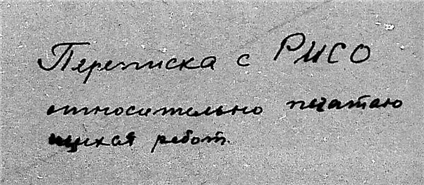 Переписка с РИСО
относительно печатаю
щихся работ.